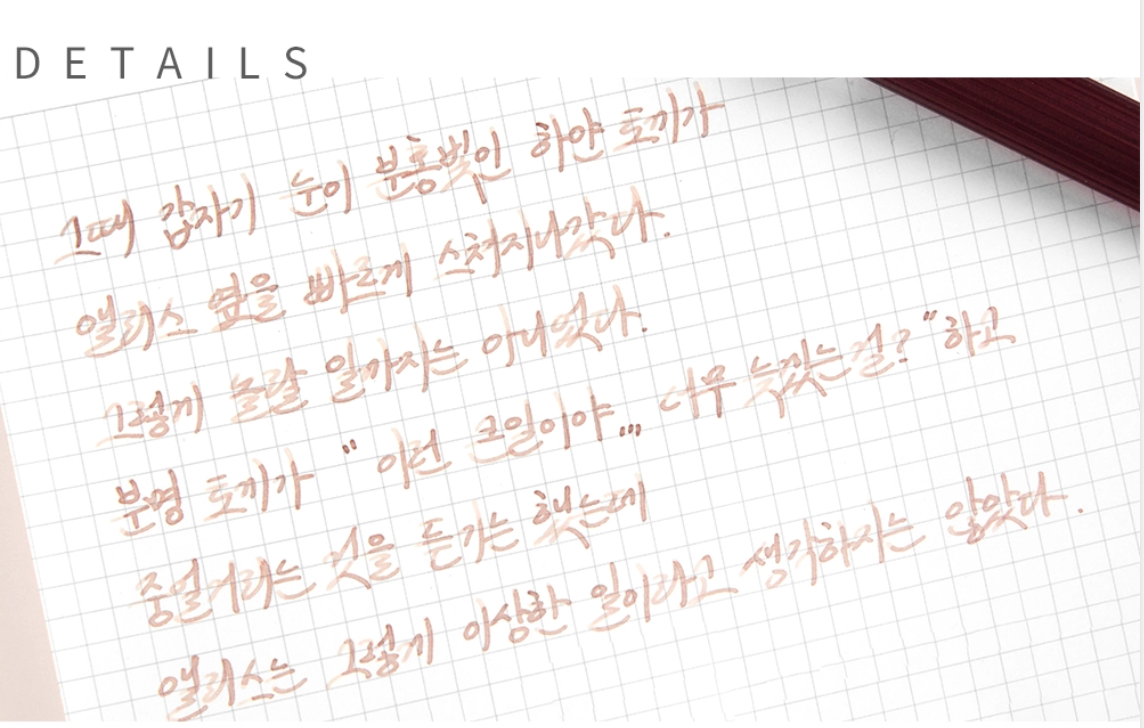 DETAILS
그때 갑자기 눈이 분홍빛인 하얀 토끼가
앨리스 옆을 빠르게 스쳐지나갔다.
그렇게 놀랄 일까지는 아니었다.
분명 토끼가 "이런 큰일이야... 너무 늦겠는걸?"하고
중얼거리는 것을 듣기는 했는데
앨리스는 그렇게 이상한 일이라고 생각하지는 않았다.